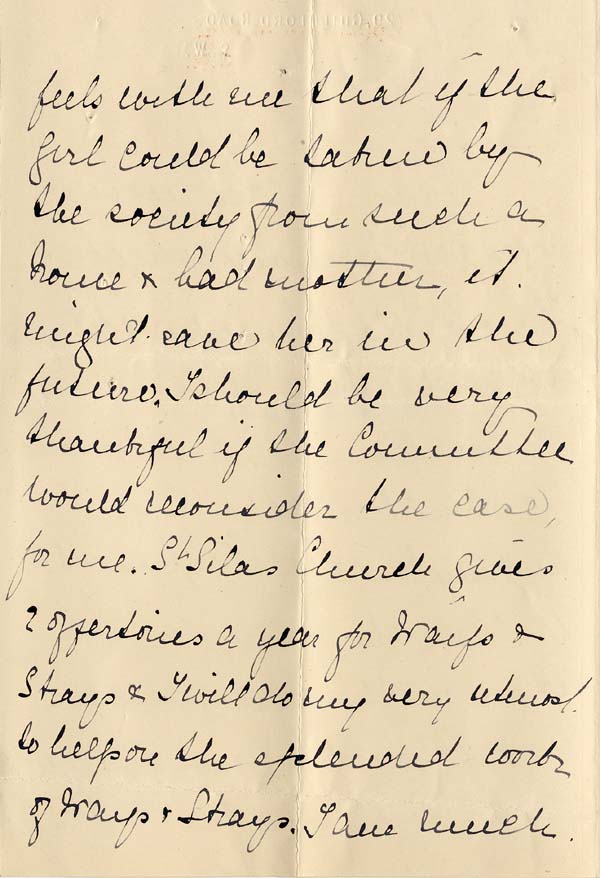 feels with me that if the
girl could be taken by
the society from such a
home & bad mother, it
might save her in the
future. I should be very
thankful if the Committee
would reconsider the case,
for me. St Silas Church gives
2 offertories a year for Waifs &
Strays & I will do my very utmost
to help on the splended work
of Waifs & Strays. I am much